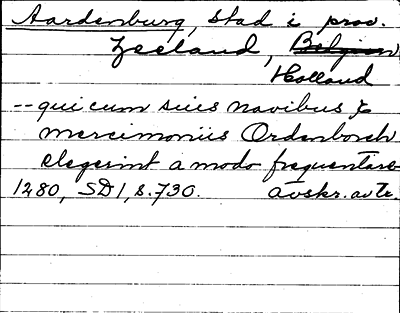 Aardenburg, stad i prov.
Zeeland, Belgien,
Holland
-- qui cum suis navibus &
mercimoniis Ordenborch
elegerint a modo frequentare
1280, SD 1, s. 730. avskr. av tr.